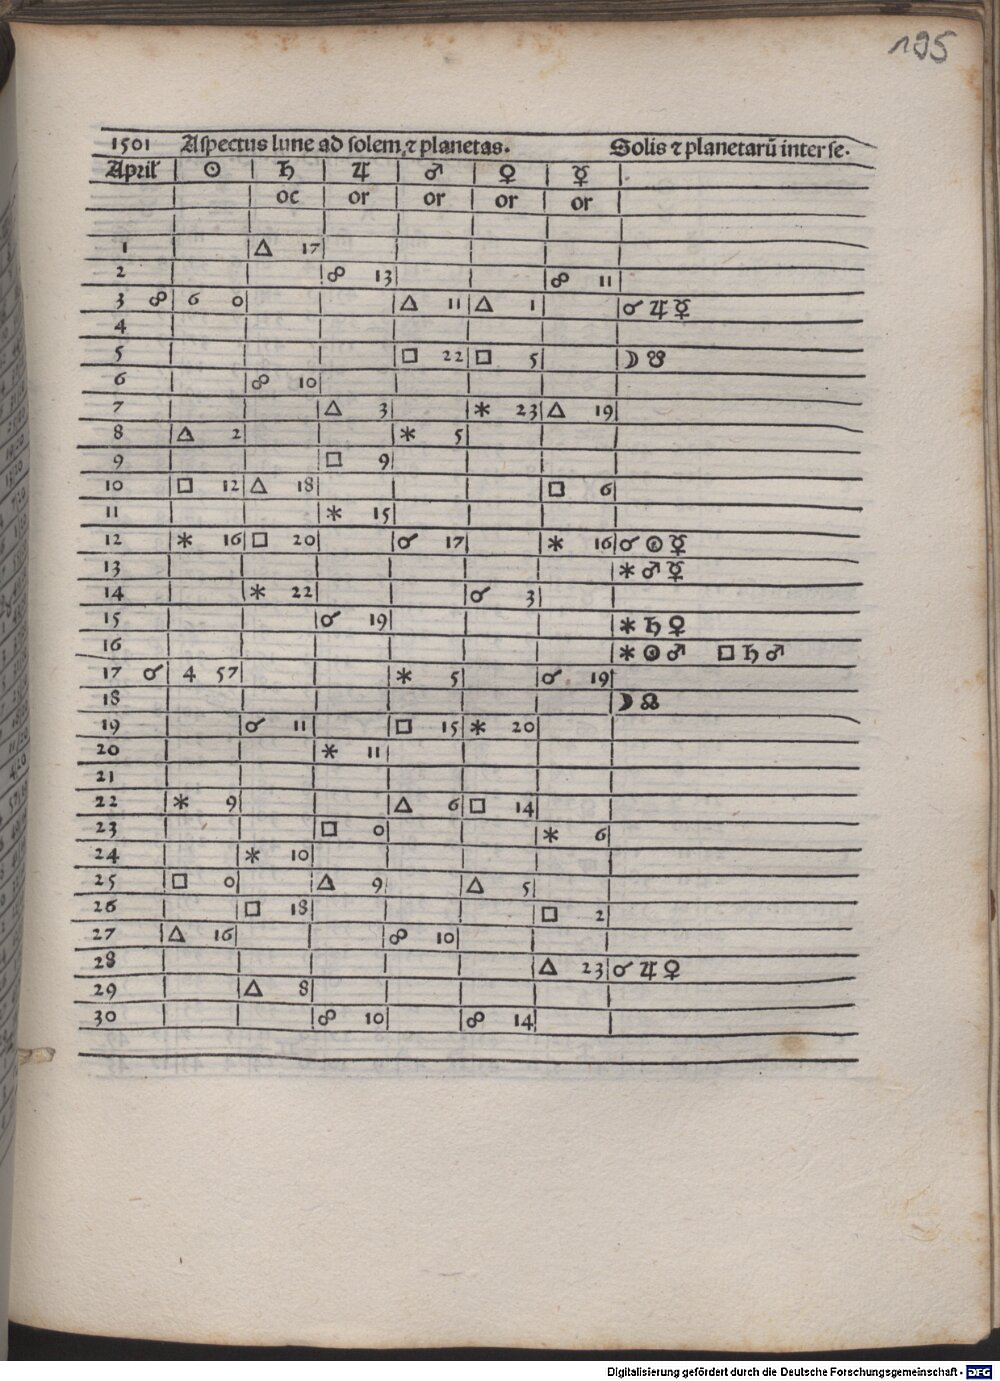 195
1501 Aſpectus lune ad ſolem, ⁊ planetas. Solis ⁊ planetarū inter ſe.
April ☉ ♄ ♃ ♂ ♀ ☿
oc or or or or
1 △ 17
2 ☍ 13 ☍ 11
3 ☍ 6 0 △ 11 △ 1 ☌ ♃ ☿
4
5 □ 22 □ 5 ☽ ☋
6 ☍ 10
7 △ 3 ⚹ 23 △ 19
8 △ 2 ⚹ 5
9 □ 9
10 □ 12 △ 18 □ 6
11 ⚹ 15
12 ⚹ 16 □ 20 ☌ 17 ⚹ 16 ☌ ☉ ☿
13 ⚹ ♂ ☿
14 ⚹ 22 ☌ 3
15 ☌ 19 ⚹ ♄ ♀
16 ⚹ ☉ ♂ □ ♄ ♂
17 ☌ 4 57 ⚹ 5 ☌ 19
18 ☽ ☊
19 ☌ 11 □ 15 ⚹ 20
20 ⚹ 11
21
22 ⚹ 9 △ 6 □ 14
23 □ 0 ⚹ 6
24 ⚹ 10
25 □ 0 △ 9 △ 5
26 □ 18 □ 2
27 △ 16 ☍ 10
28 △ 23 ☌ ♃ ♀
29 △ 8
30 ☍ 10 ☍ 14
Digitalisierung gefördert durch die Deutsche Forschungsgemeinschaft - DFG